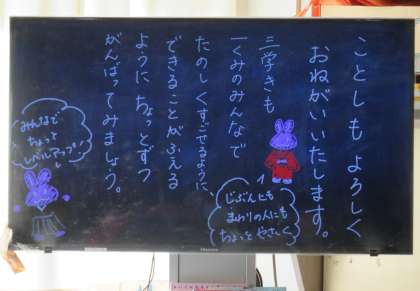 ことしもよろしく
おねがいいたします。
三学きも
一くみのみんなで
たのしくすごせるように、
できることがふえる
ように ちょっとずつ
がんばってみましょう。
じぶんにも
まわりの人にも
ちょっと やさしく
みんなで
ちょっと
レベルアップ!
Hisense